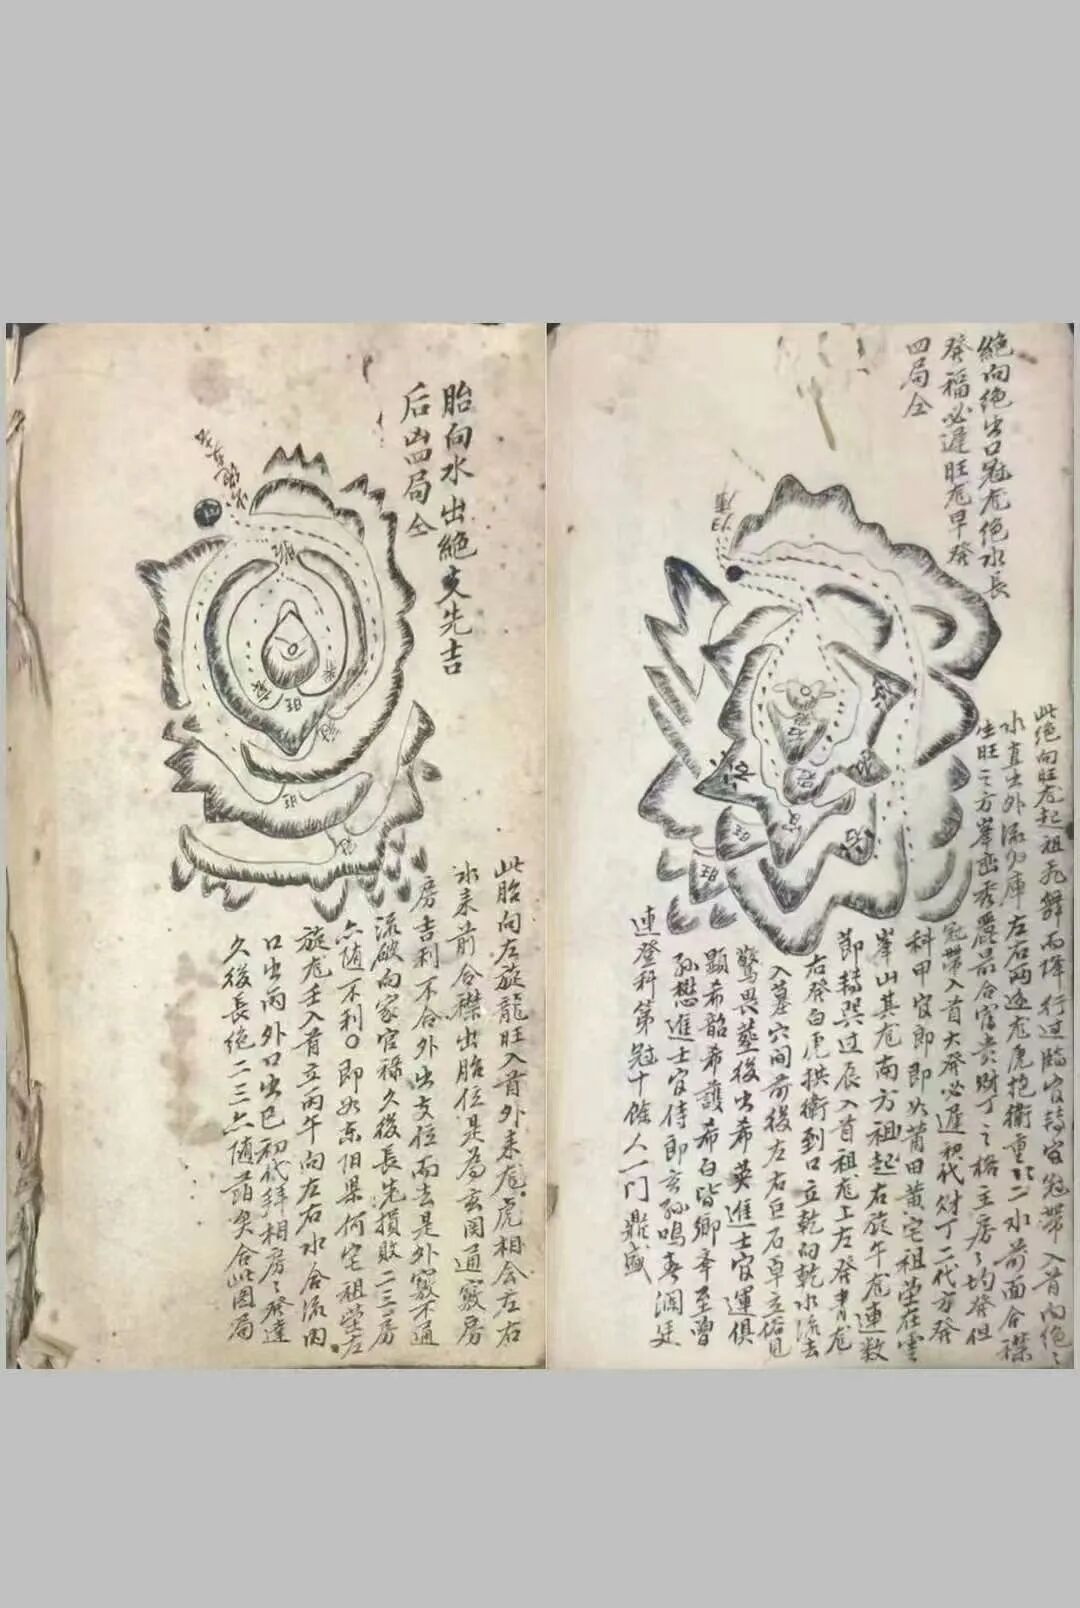 絕向絕出口冠尨絕水長
發福必遲旺尨早發
四局仝
此絕向旺尨起祖飛辭而降行过臨官轉官冠帶入首內絕
水直出外流归庫左右兩边尨虎抱衛重二水前面合襟
生旺之方峯巒秀麗最合富貴財丁之格主房均發但
冠帶入首大發必遲初代財丁二代方發
科甲官即即如莆田黄宅祖塋在雲
峯山其尨南方祖起右旋午尨連数
節轉巽过辰入首祖尨上左發青尨
右發白虎拱衛到口立乾向乾水流去
入墓穴间前後左右巨石卓立俗見
驚畏葬後出希英進士官運俱
顯希韶希護希白皆鄉奉至曾
孫懋進士官侍即玄孫鳴春澗廷
連登科第冠十餘人一门鼎盛
胎向水出絕支先吉
后凶四局仝
此胎向左旋龍旺入首外来尨虎相会左右
水来前合襟出胎位是為玄闰通竅房
房吉利不合外出支位而去是外竅不通
流破向家官禄久後長先損敗二三房
六随不利〇即如东阳果何宅祖塋左
旋尨壬入首立丙午向左右水合流內
口出丙外口出巳初代拜相房發達
久後長絕二三六随萡矣合此图局